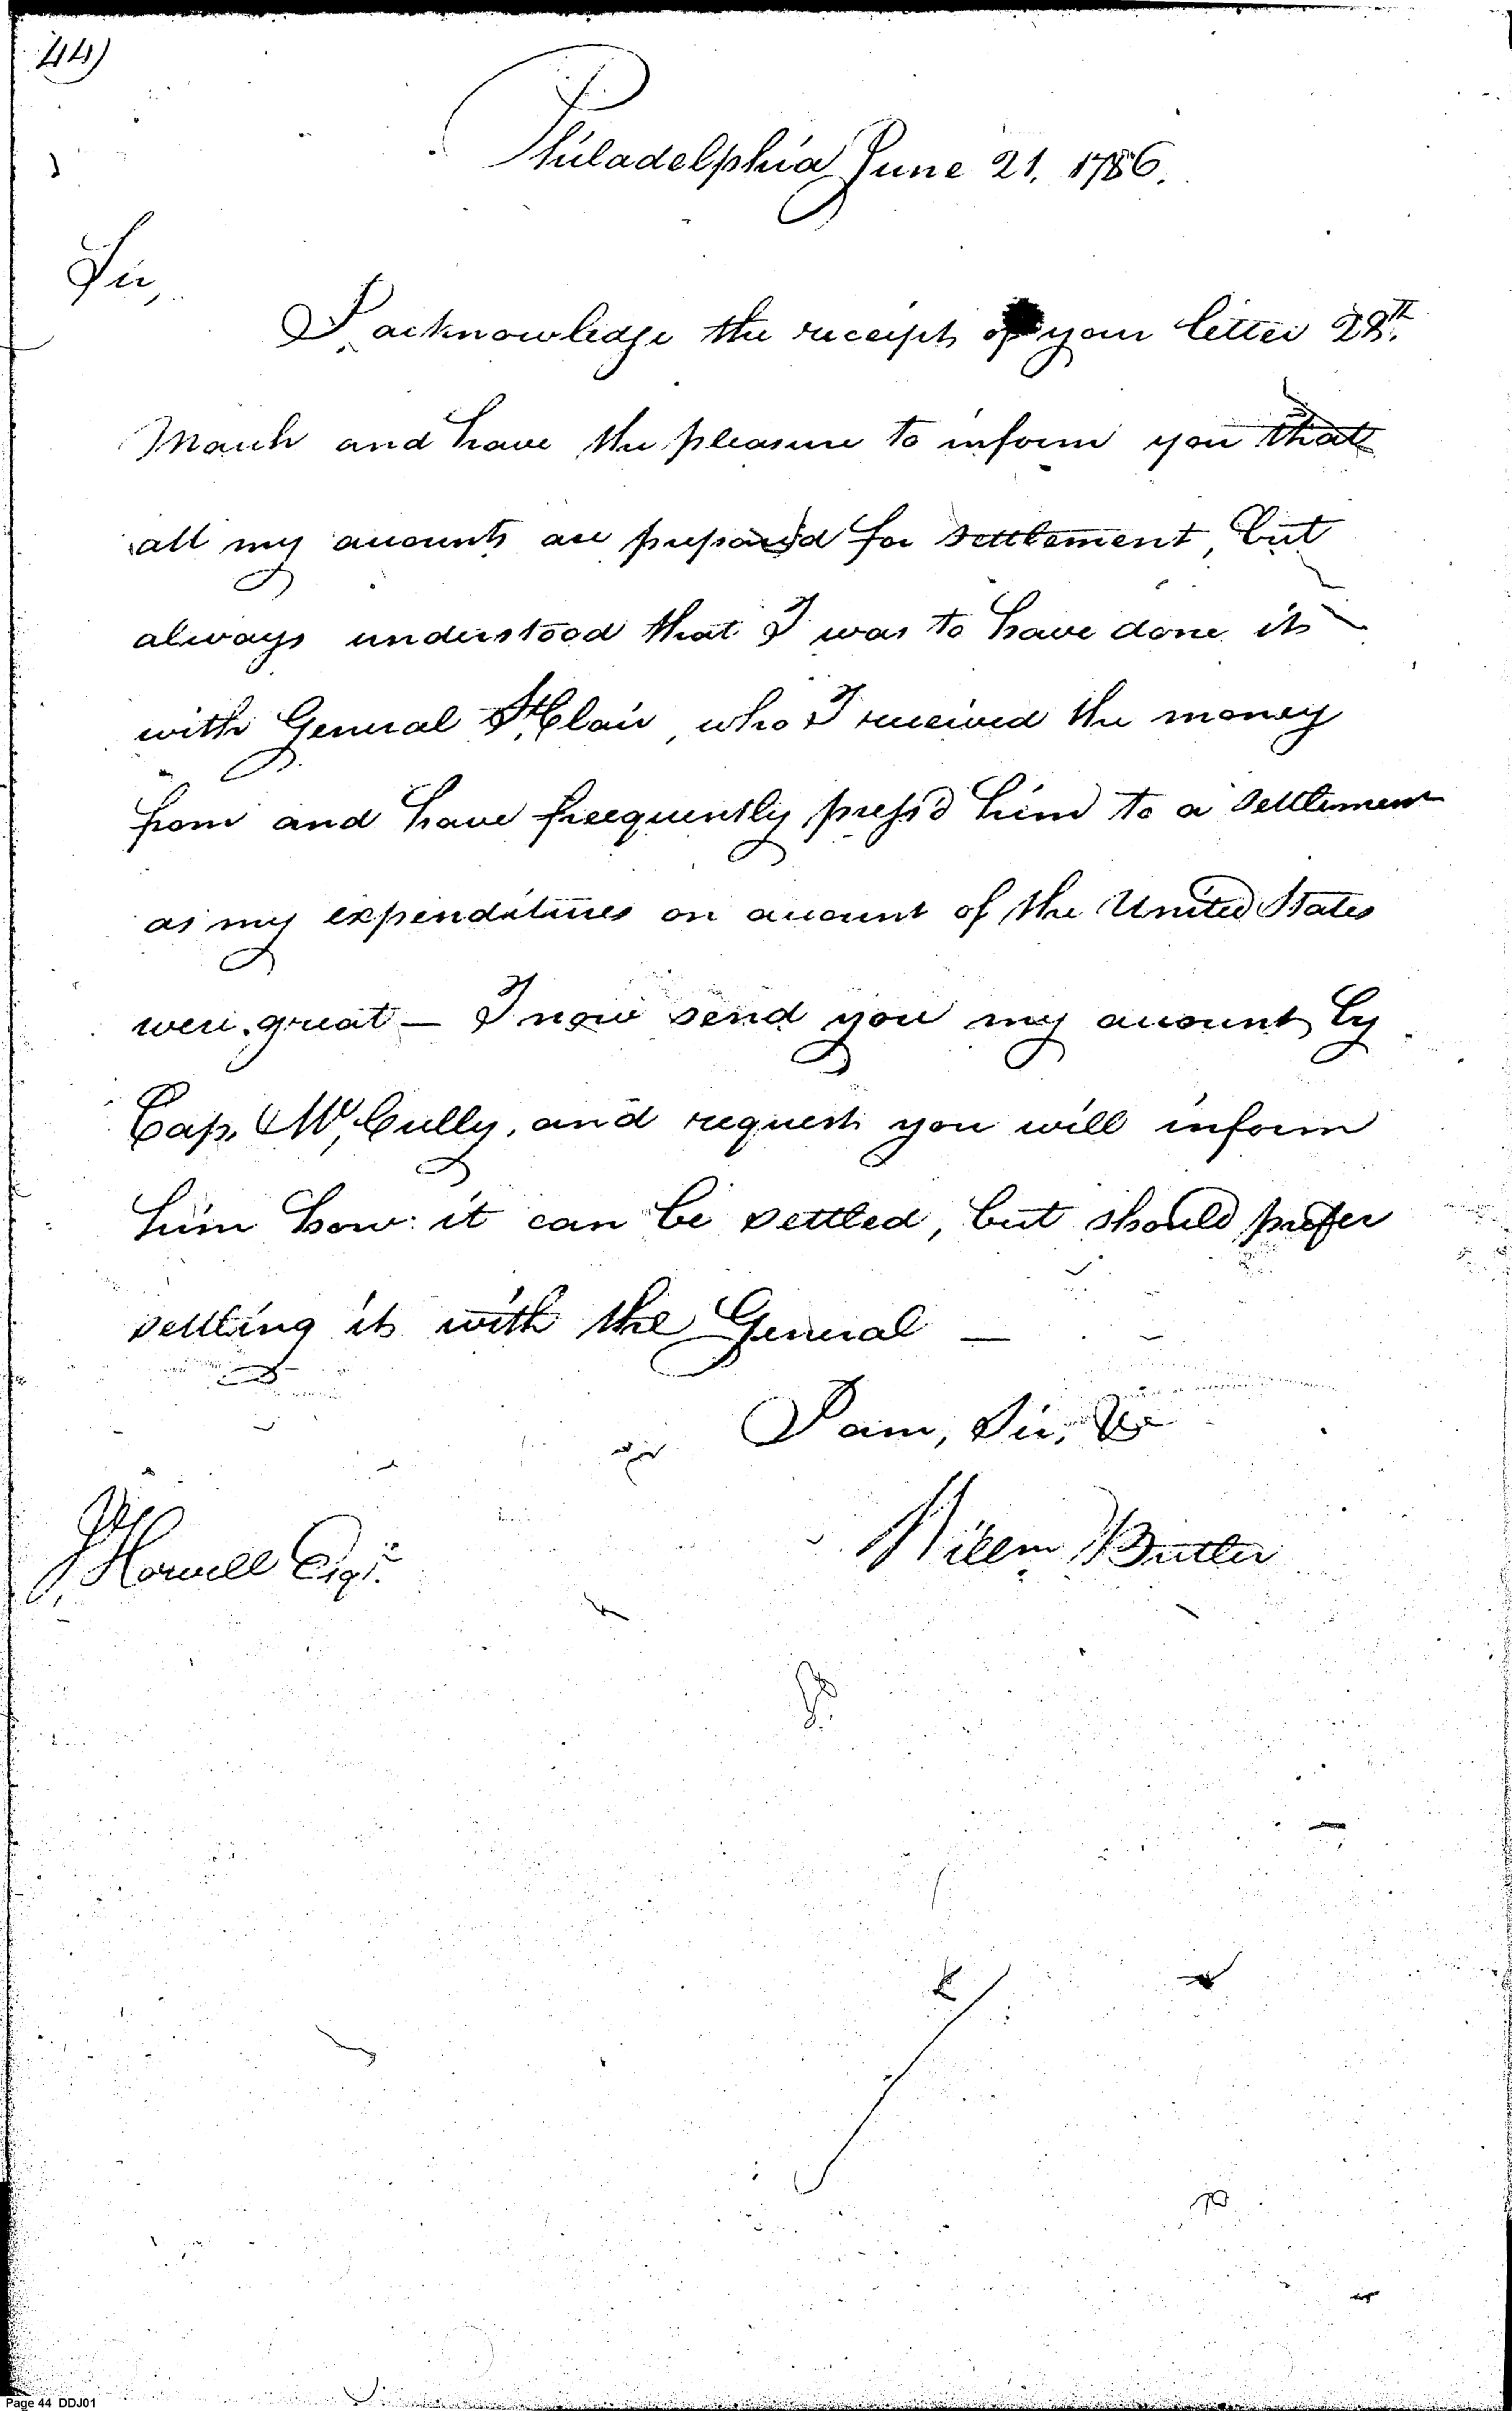 44)
Philadelphia June 21. 1786.
Sir,
I acknowledge the receipt of your letter 28th.
March and have the pleasure to inform you that
all my accounts are prepared for settlement, but
always understood that I was to have done it
with General St. Clair, who I received the money
from and have freequently press'd him to a settlement
as my expenditures on account of the United States
were great — I now send you my account by
Cap. Mc, Cully, and request you will inform
him how it can be settled, but should prefer
settling it with the General —
I am, Sir, &c
Willm Butler
J, Howell Esqr.
Page 44 DDJ01